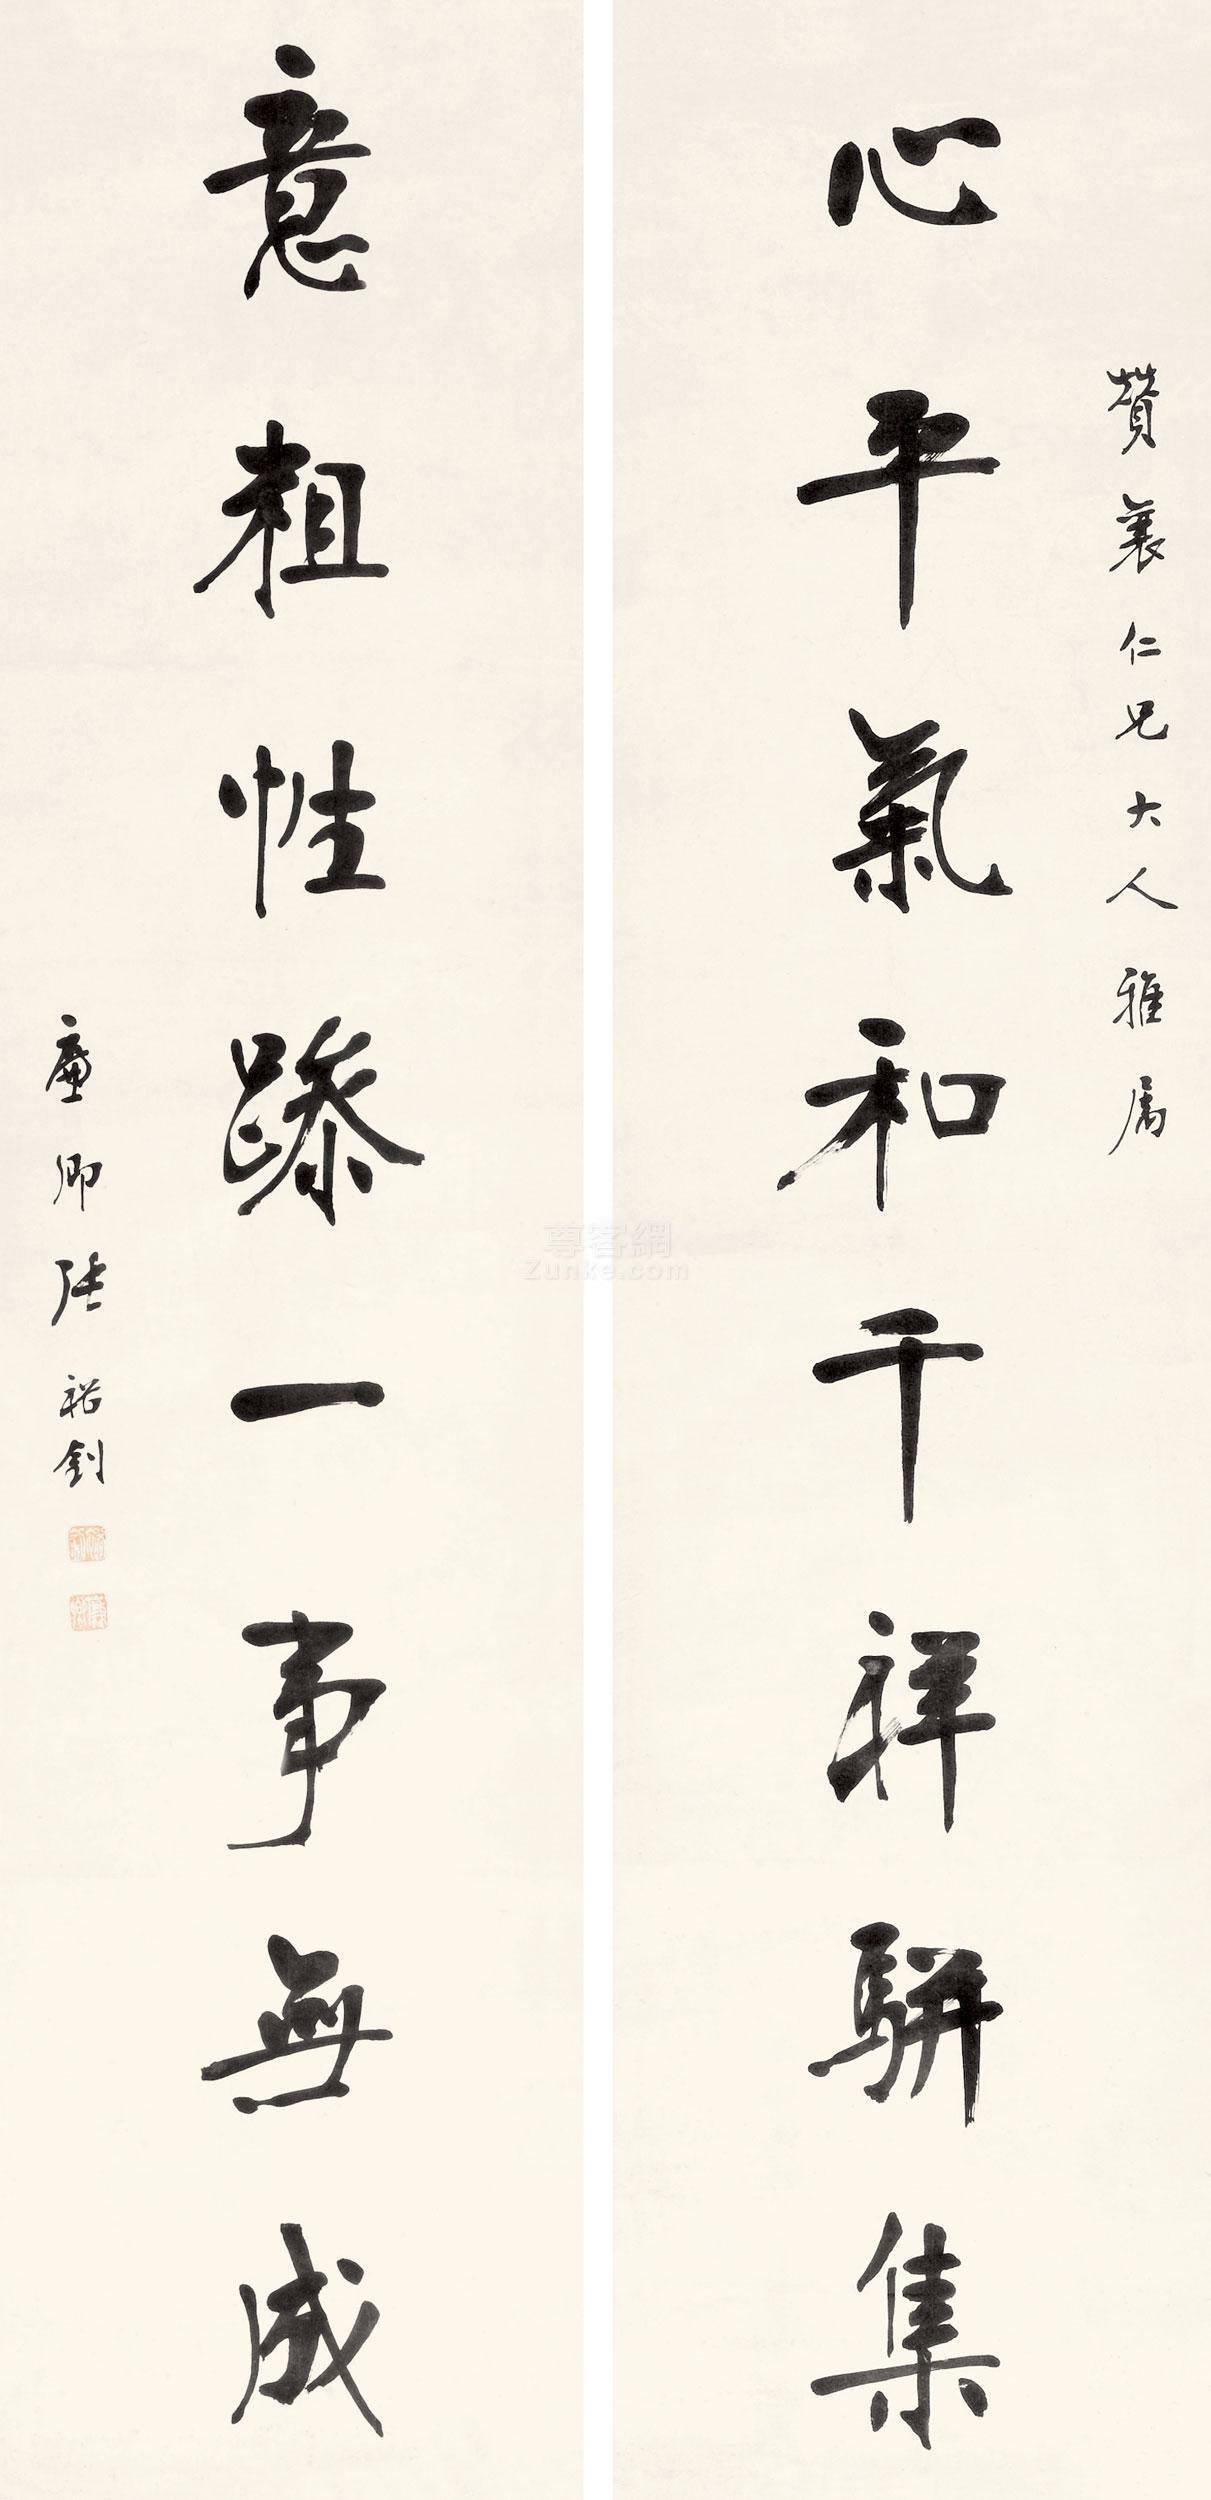 贊襄仁兄大人雅属
心平氣和千祥駢集
意粗性躁一事無成
廉卿張裕釗
尊客網
Zunke.com